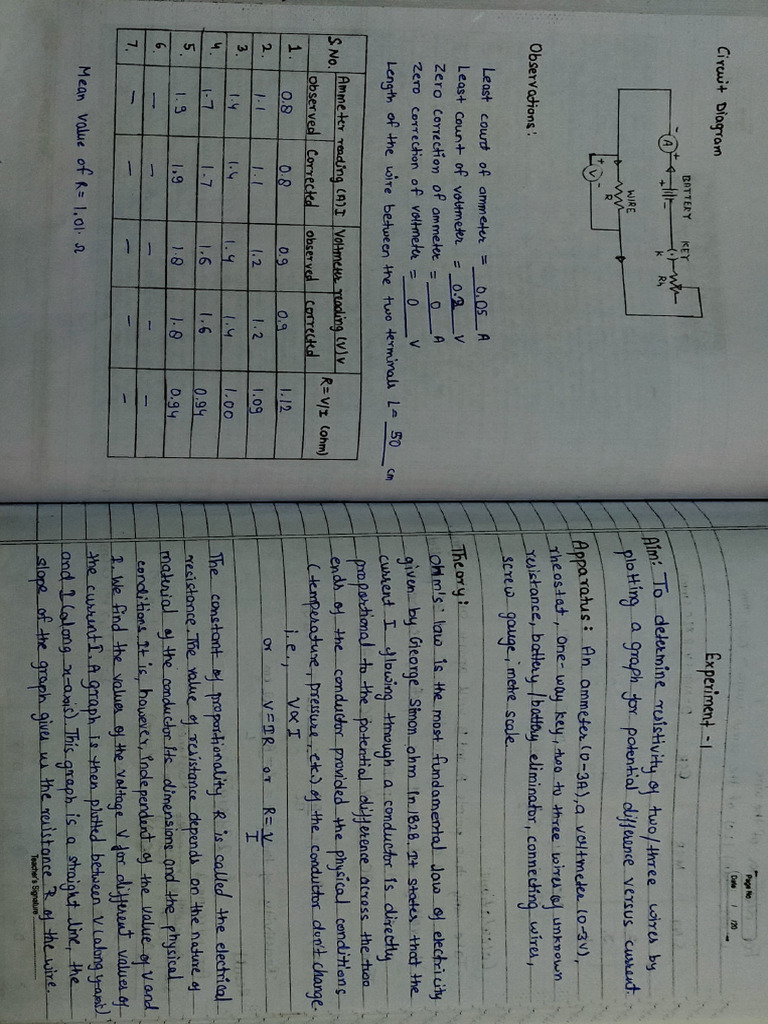 Circuit Diagram
BATTERY
KEY
- A +
+ -
K
Rh
WIRE
R
+ V -
Observations:
Least count of ammeter = 0.05 A
Least count of voltmeter = 0.2 V
Zero correction of ammeter = 0 A
Zero correction of voltmeter = 0 V
Length of the wire between the two terminals L = 50 cm
S No. Ammeter reading (A) I Voltmeter reading (V) V R = V/I (ohm)
observed corrected observed corrected
1. 0.8 0.8 0.9 0.9 1.12
2. 1.1 1.1 1.2 1.2 1.09
3. 1.4 1.4 1.4 1.4 1.00
4. 1.7 1.7 1.6 1.6 0.94
5. 1.9 1.9 1.8 1.8 0.94
6. - - - - -
7. - - - - -
Mean value of R = 1.01 Ω
Page No:
Date / /20
Experiment - 1
Aim: To determine resistivity of two/three wires by
plotting a graph for potential difference versus current.
Apparatus: An ammeter (0-3A), a voltmeter (0-3V),
rheostat, one-way key, two to three wires of unknown
resistance, battery/battery eliminator, connecting wires,
screw gauge, metre scale.
Theory:
ohm's law is the most fundamental law of electricity
given by George Simon ohm In 1828. It states that the
current I flowing through a conductor is directly
proportional to the potential difference across the two
ends of the conductor provided the physical conditions
(temperature, pressure, etc.) of the conductor don't change.
i.e., V ∝ I
or V = IR or R = V/I
The constant of proportionality R is called the electrical
resistance. The value of resistance depends on the nature of
material of the conductor its dimensions and the physical
conditions. It is, however, independent of the value of V and
I. We find the values of the voltage V for different values of
the current I. A graph is then plotted between V (along y-axis)
and I (along x-axis). This graph is a straight line, the
slope of the graph gives us the resistance R of the wire.
Teacher's Signature